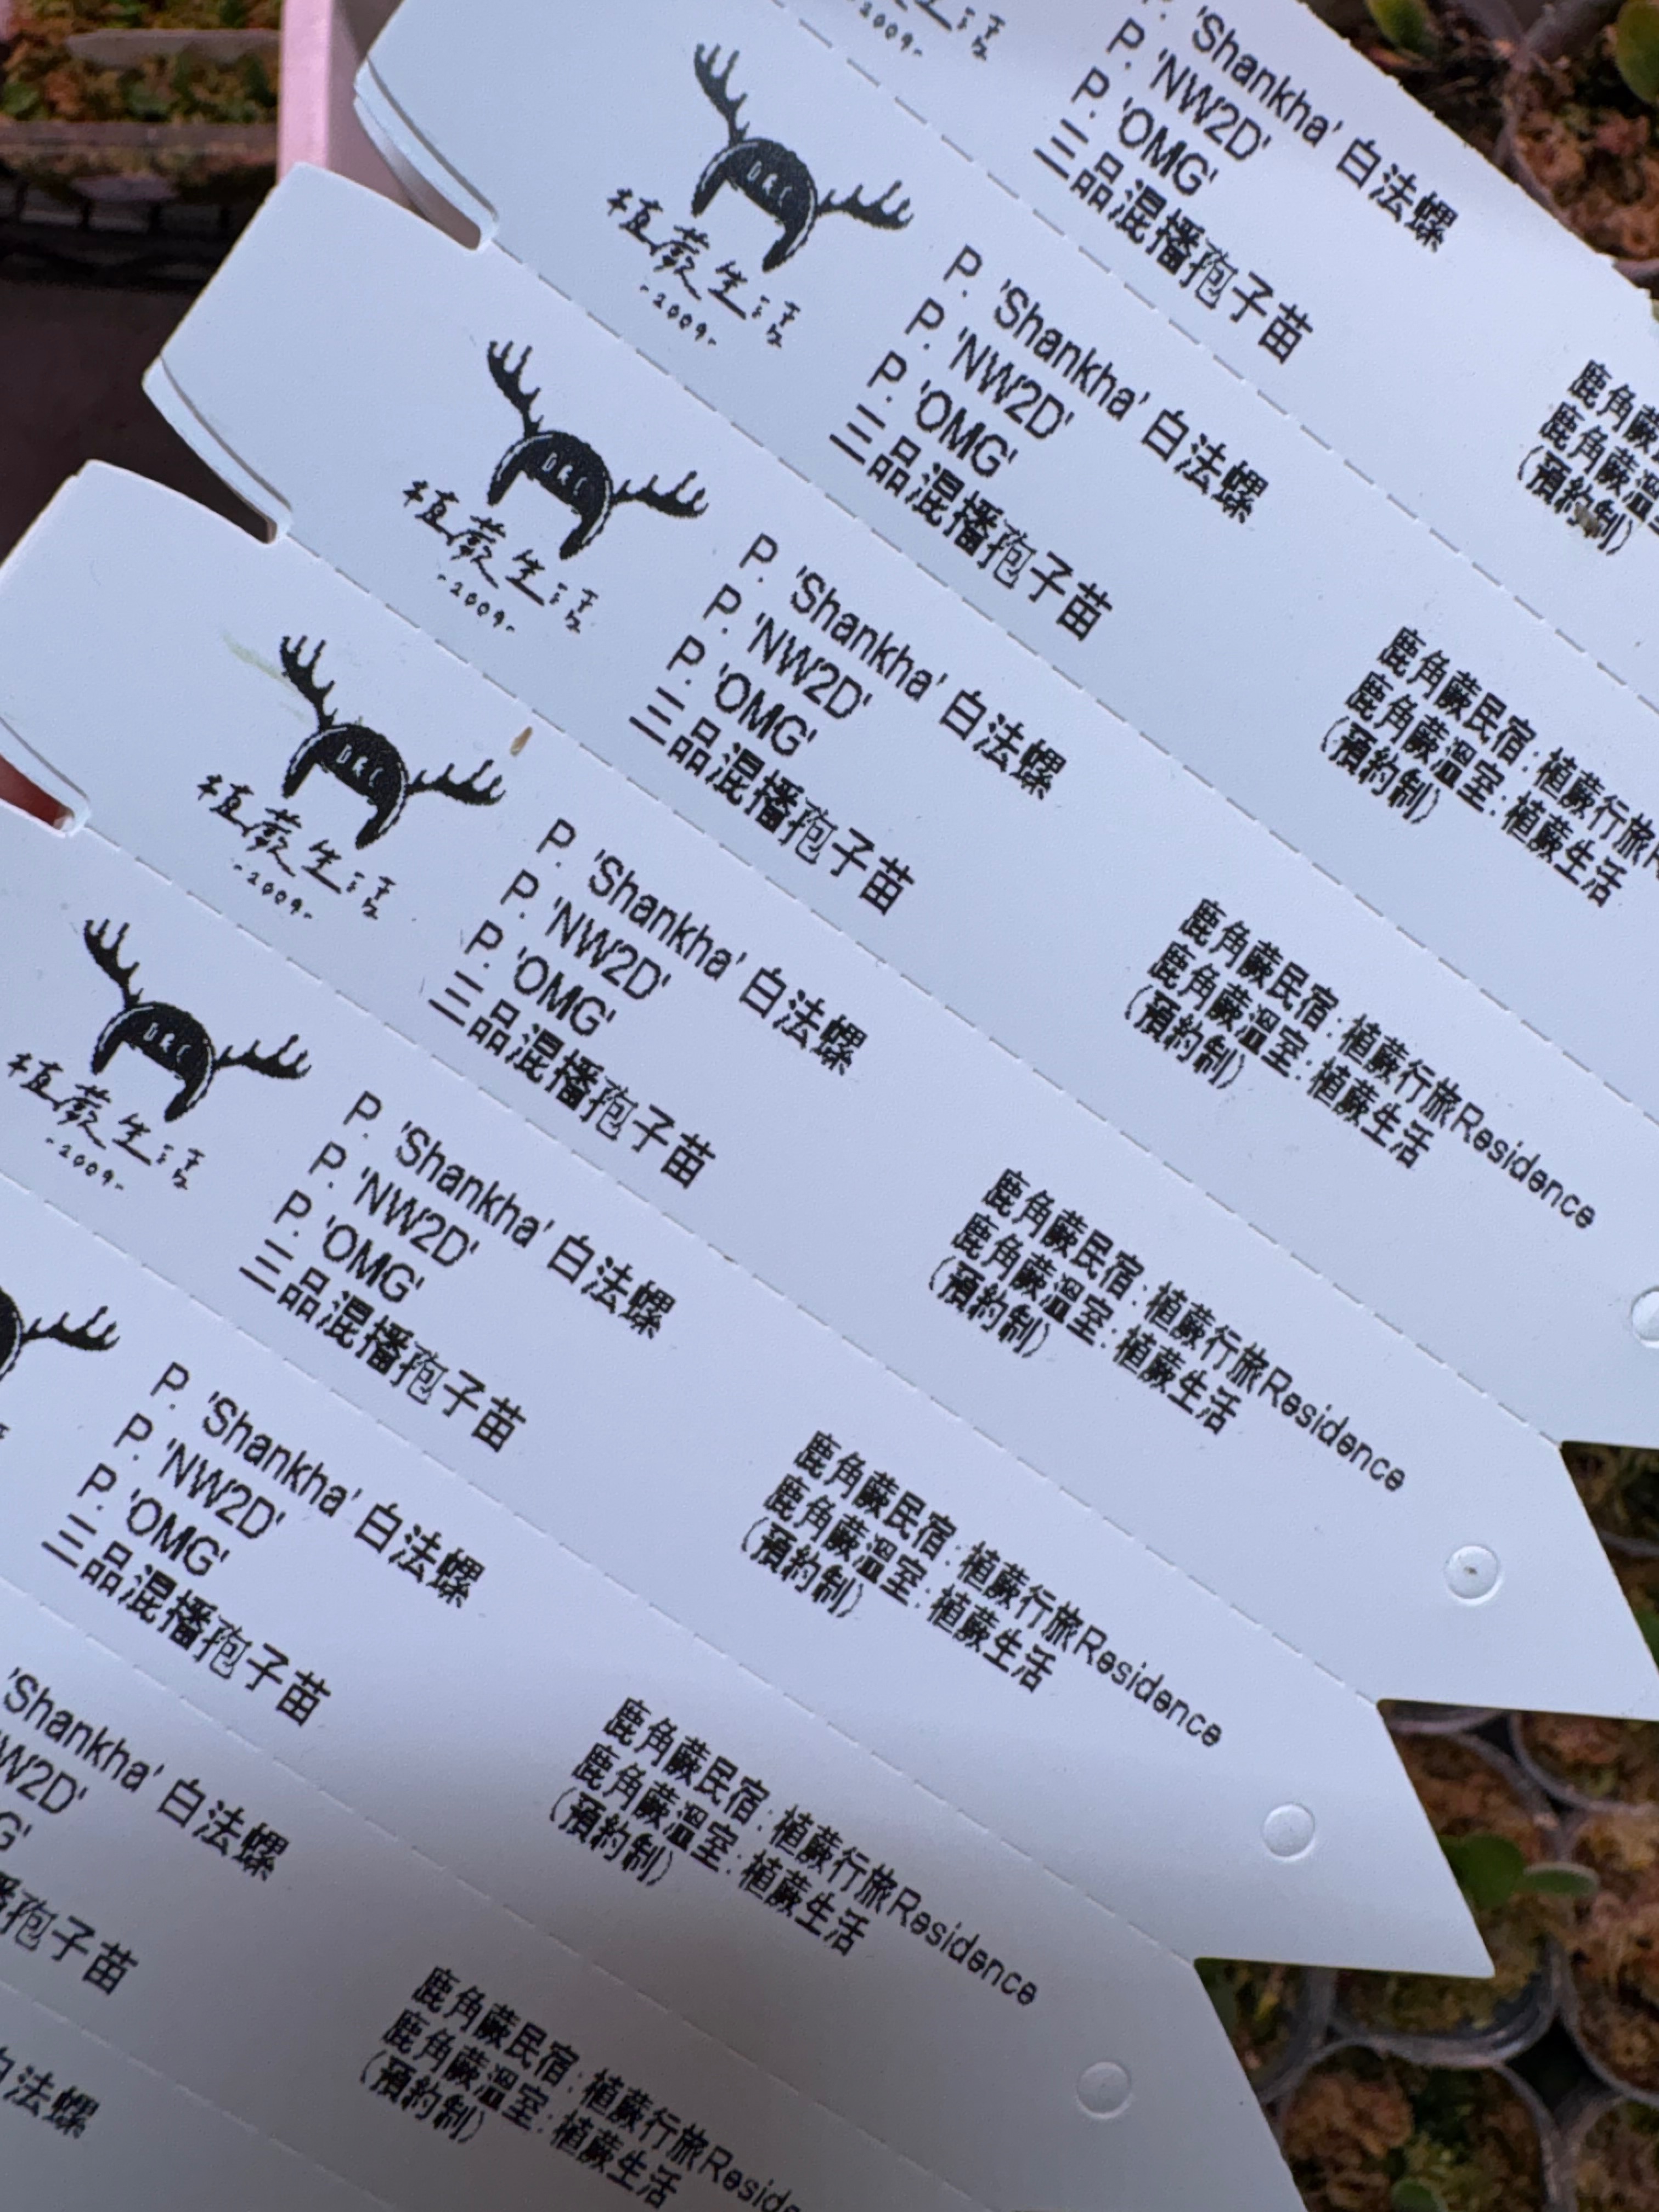 -2009-
P. 'Shankha' 白法螺
P. 'NW2D'
P. 'OMG'
三品混播孢子苗
鹿角蕨
鹿角蕨溫
(預約制)
DRC
植蕨生活
-2009-
P. 'Shankha' 白法螺
P. 'NW2D'
P. 'OMG'
三品混播孢子苗
鹿角蕨民宿:植蕨行旅R
鹿角蕨溫室:植蕨生活
(預約制)
DRC
植蕨生活
-2009-
P. 'Shankha' 白法螺
P. 'NW2D'
P. 'OMG'
三品混播孢子苗
鹿角蕨民宿:植蕨行旅Residence
鹿角蕨溫室:植蕨生活
(預約制)
DRC
植蕨生活
-2009-
P. 'Shankha' 白法螺
P. 'NW2D'
P. 'OMG'
三品混播孢子苗
鹿角蕨民宿:植蕨行旅Residence
鹿角蕨溫室:植蕨生活
(預約制)
DRC
植蕨生活
-2009-
P. 'Shankha' 白法螺
P. 'NW2D'
P. 'OMG'
三品混播孢子苗
鹿角蕨民宿:植蕨行旅Residence
鹿角蕨溫室:植蕨生活
(預約制)
P. 'Shankha' 白法螺
P. 'NW2D'
P. 'OMG'
三品混播孢子苗
鹿角蕨民宿:植蕨行旅Residence
鹿角蕨溫室:植蕨生活
(預約制)
'Shankha' 白法螺
W2D'
G'
播孢子苗
鹿角蕨民宿:植蕨行旅Reside
鹿角蕨溫室:植蕨生活
(預約制)
白法螺